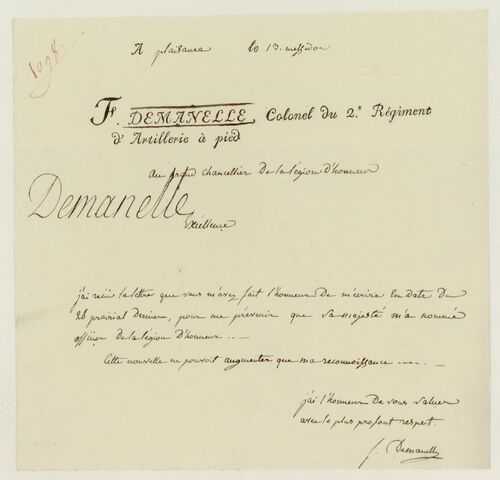 1098.
A plaisance le 13 messidor
F. DEMANELLE, Colonel du 2.e Régiment
d'Artillerie à pied
Au grand Chancellier De la légion D'honneur
Demanelle
Excellence
j'ai reçu la lettre que vous m'avez fait l'honneur De m'écrire En Date Du
26 prairial Dernier, pour me prévenir que Sa Majesté m'a nommé
officier De la légion D'honneur...
Cette nouvelle ne pouvoit augmenter que ma reconnoissance.....
j'ai l'honneur De vous saluer
avec le plus profont respect.
f. Demanelle